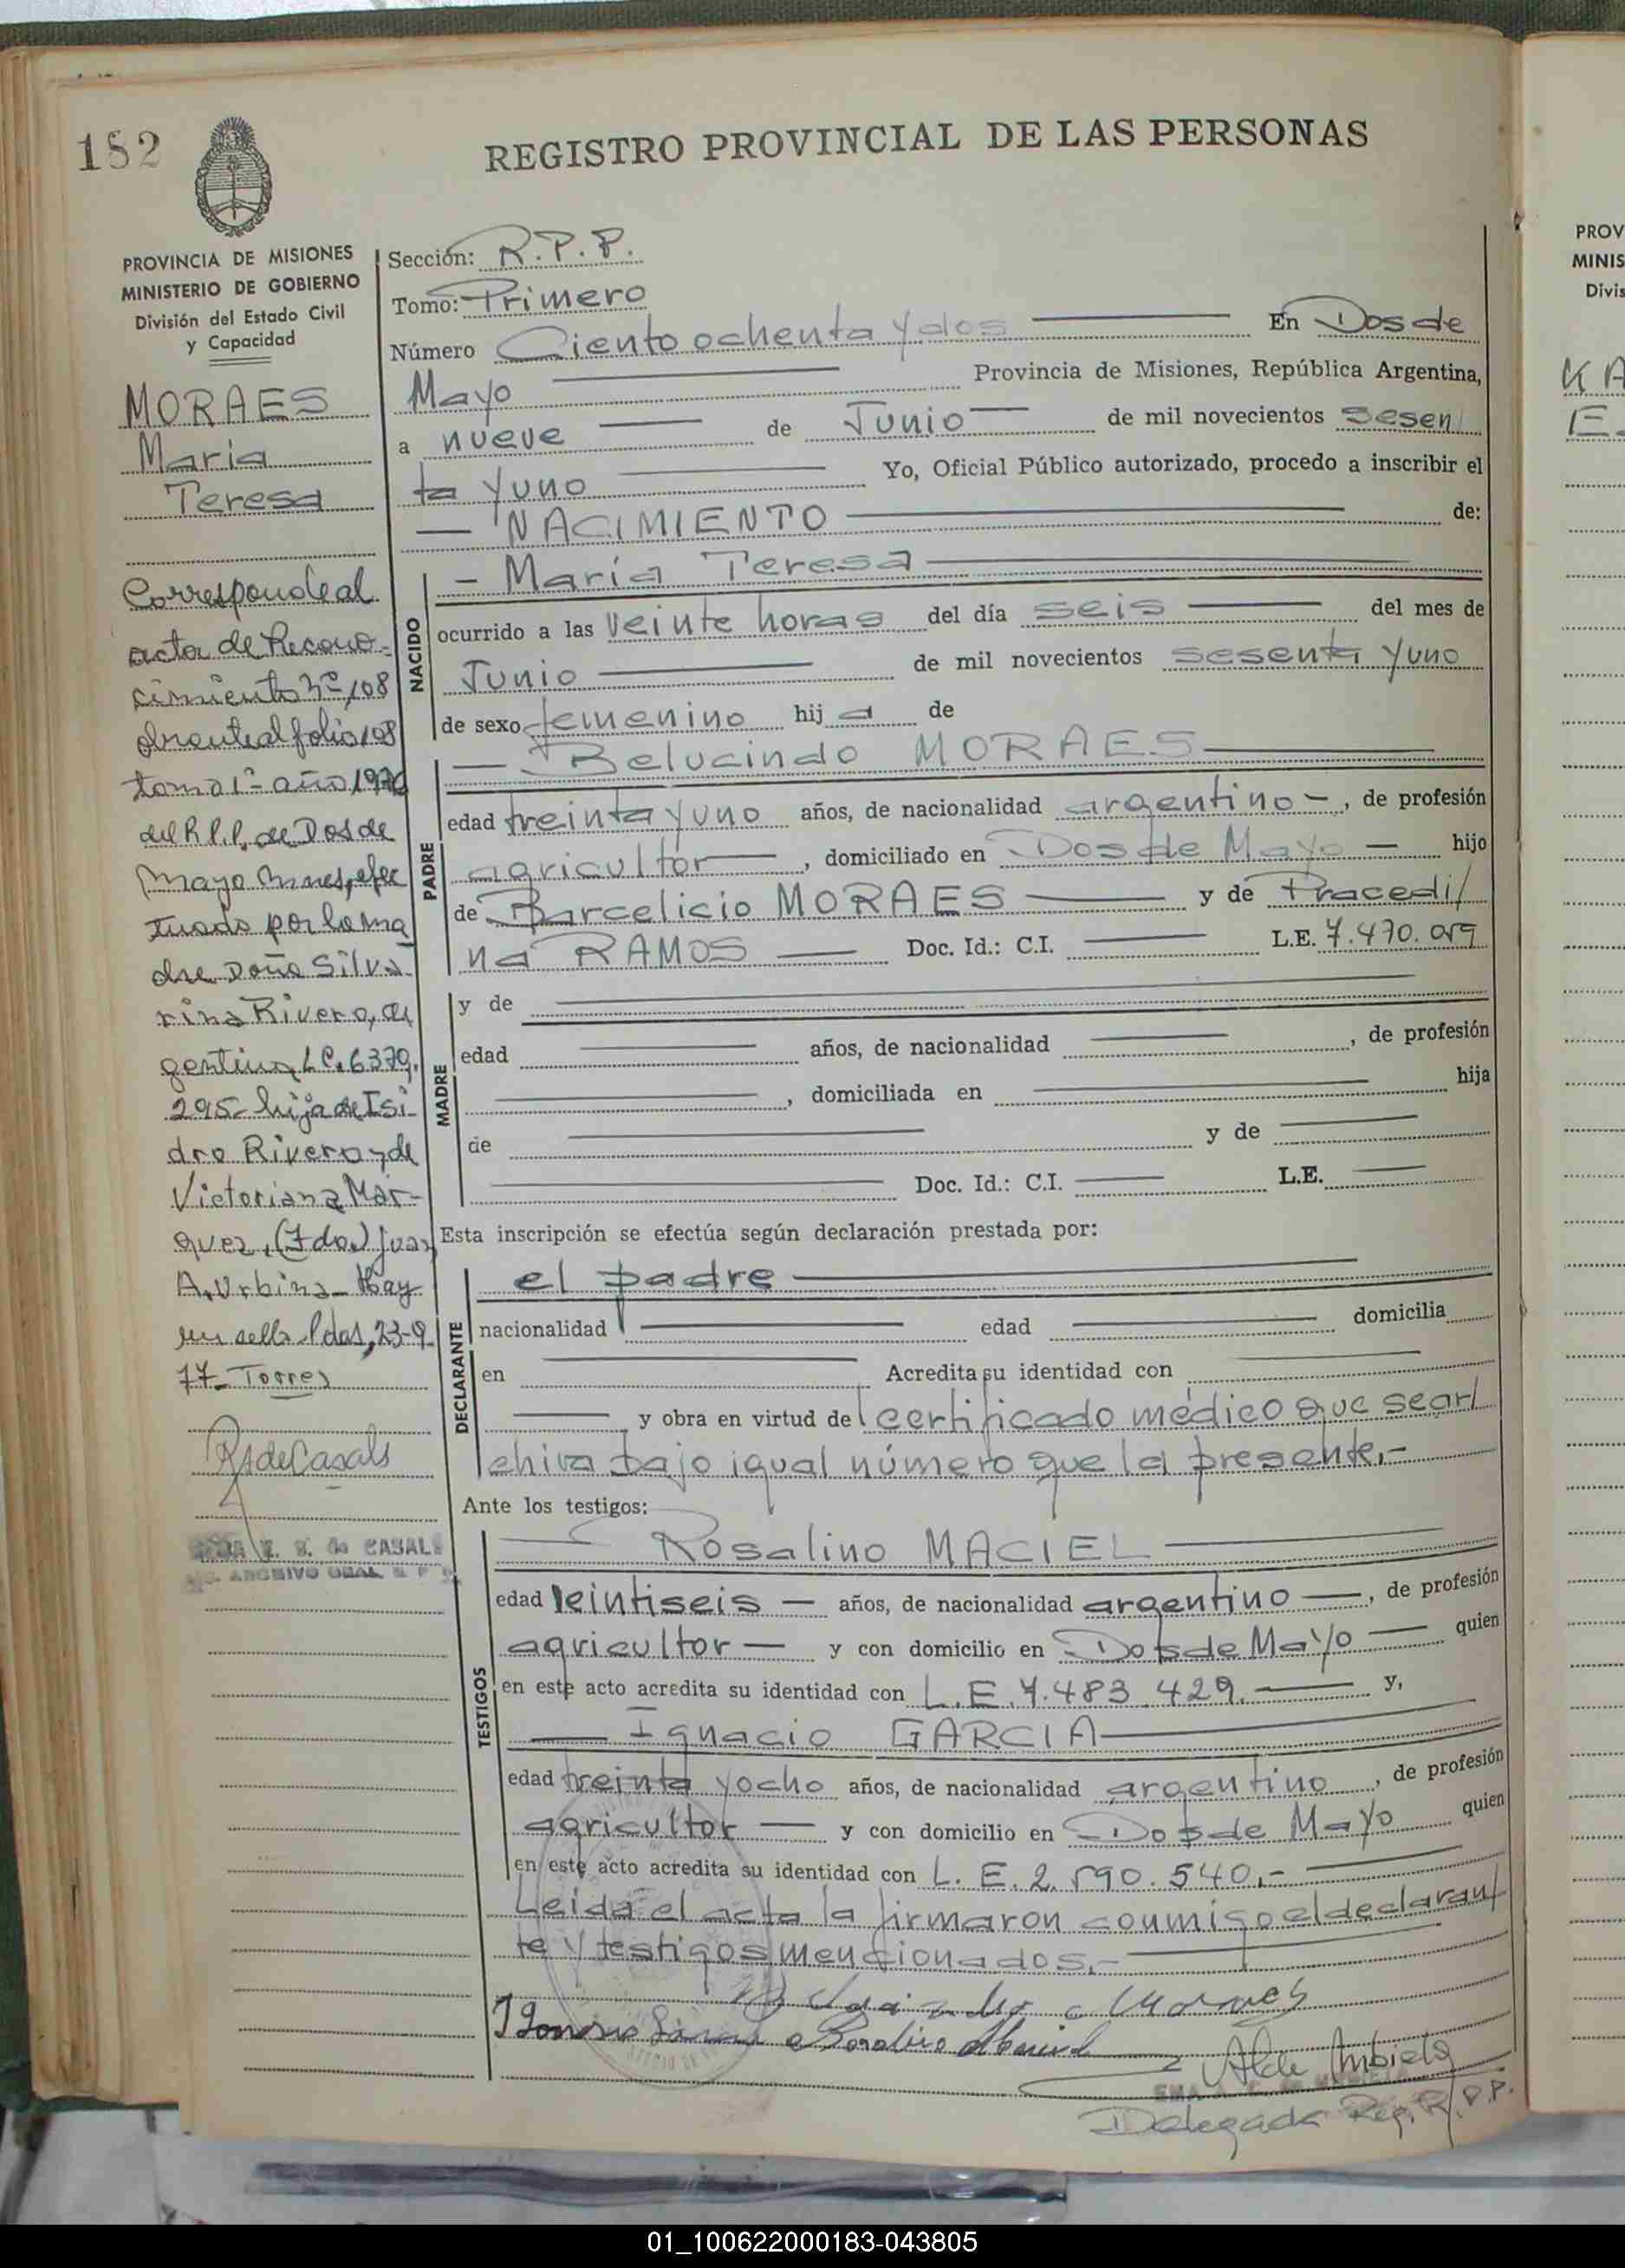 182
REGISTRO PROVINCIAL DE LAS PERSONAS
PROVINCIA DE MISIONES
MINISTERIO DE GOBIERNO
División del Estado Civil
y Capacidad
MORAES
María
Teresa
Corresponde al
acta de Recono-
cimiento Nº 108
obrante al folio 108
tomo 1º año 1976
del R.P.P. de Dos de
Mayo Mnes, efec
tuado por la ma
dre Doña Silva-
rina Rivero, ar
gentina, LC. 6379.
295- hija de Isi-
dro Rivero y de
Victoriana Mar-
quez, (Fdo.) Juan
A. Urbina- Hay
un sello- Pdas, 23-9-
77- Torres
de CASALS
ARCHIVO GRAL.
Sección: R.P.P.
Tomo: Primero
Número Ciento ochenta y dos En Dos de
Mayo Provincia de Misiones, República Argentina,
a nueve de Junio de mil novecientos sesen
ta y uno Yo, Oficial Público autorizado, procedo a inscribir el
— NACIMIENTO de:
NACIDO
- María Teresa
ocurrido a las veinte horas del día seis del mes de
Junio de mil novecientos sesenta y uno
de sexo femenino hij a de
PADRE
— Belucindo MORAES
edad treinta y uno años, de nacionalidad argentino -, de profesión
agricultor —, domiciliado en Dos de Mayo — hijo
de Barcelicio MORAES y de Pracedi/
na RAMOS — Doc. Id.: C.I. L.E. 7.470.059
MADRE
y de
edad años, de nacionalidad , de profesión
, domiciliada en hija
de y de
Doc. Id.: C.I. L.E.
Esta inscripción se efectúa según declaración prestada por:
DECLARANTE
el padre
nacionalidad edad domicilia
en Acredita su identidad con
y obra en virtud del certificado médico que se ar/
chiva bajo igual número que la presente.-
Ante los testigos:
TESTIGOS
Rosalino MACIEL
edad veintiseis — años, de nacionalidad argentino —, de profesión
agricultor — y con domicilio en Dos de Mayo — quien
en este acto acredita su identidad con L.E. 7.483.429. y,
— Ignacio GARCIA
edad treinta y ocho años, de nacionalidad argentino , de profesión
agricultor — y con domicilio en Dos de Mayo quien
en este acto acredita su identidad con L.E. 2.590.540.-
Leida el acta la firmaron conmigo el declaran/
te y testigos mencionados.-
Delegada Reg. R.P.P.
PROV
MINIS
Divis
KA
E.
01_100622000183-043805